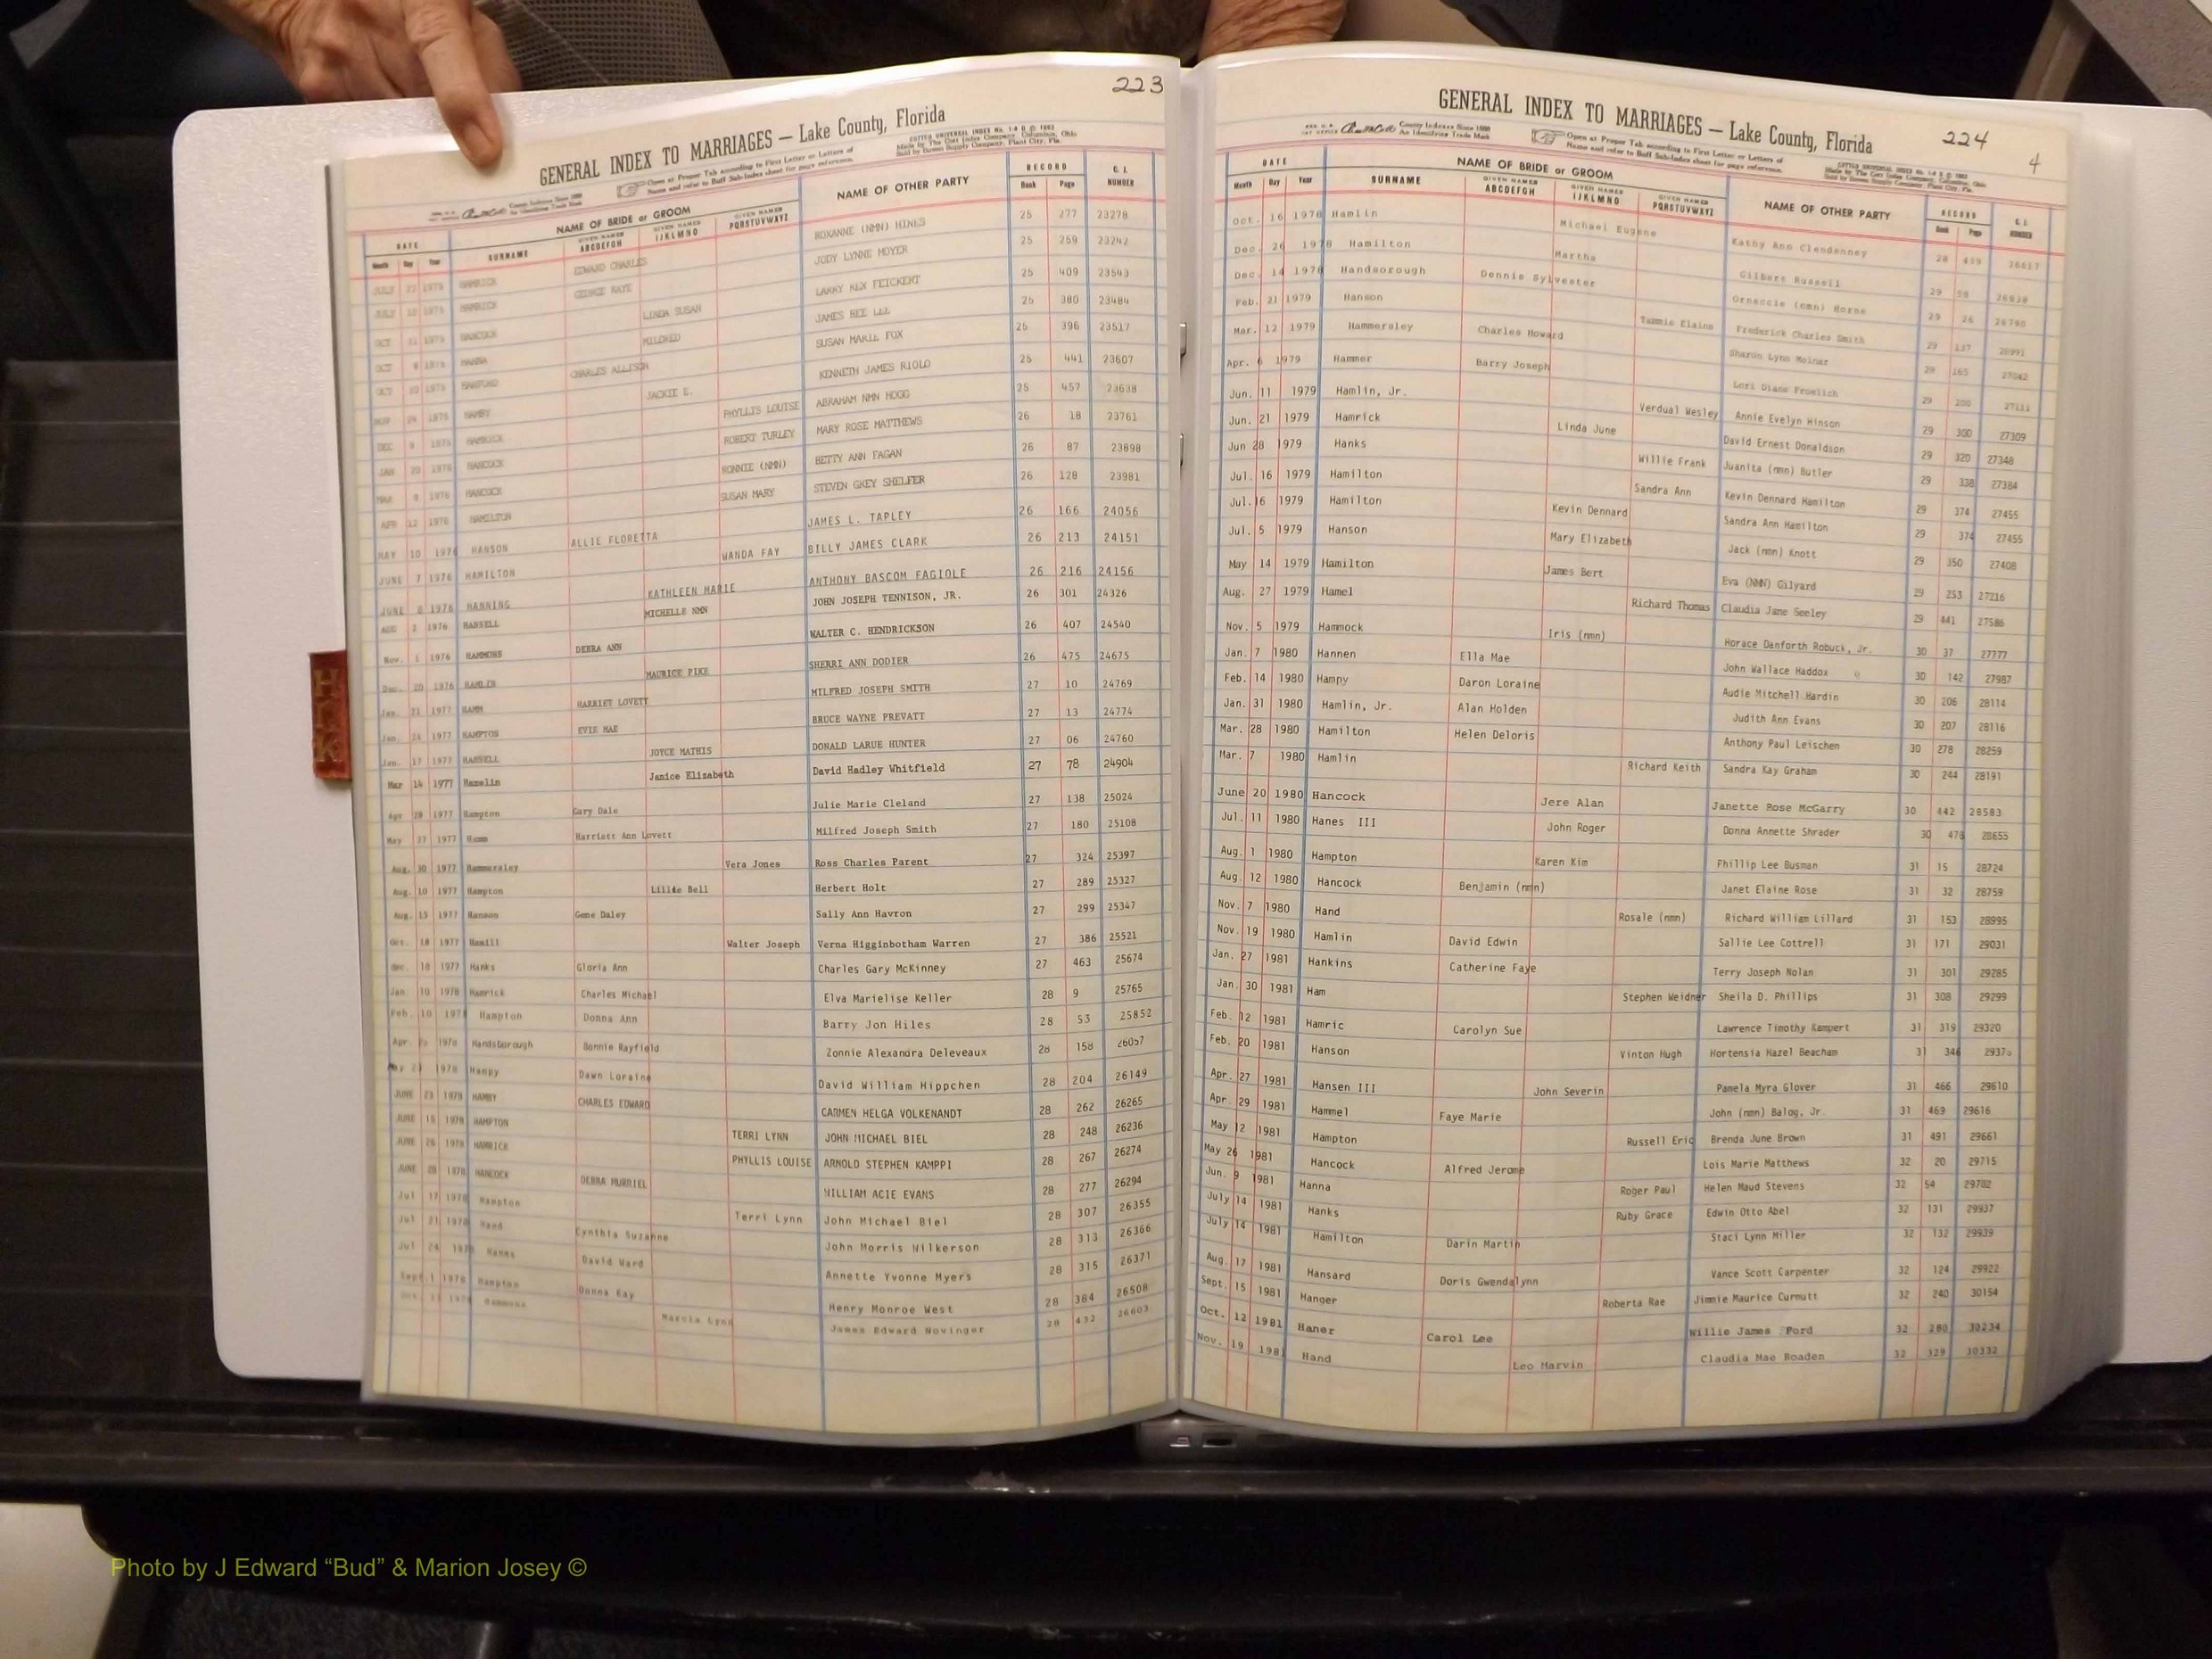 223
GENERAL INDEX TO MARRIAGES — Lake County, Florida
County Indexes Since 1888
An Identifying Trade Mark
Open at Proper Tab according to First Letter or Letters of
Name and refer to Buff Sub-Index sheet for page reference.
Made by The Cott Index Company, Columbus, Ohio
Sold by Bowen Supply Company, Plant City, Fla.
DATE NAME OF BRIDE or GROOM NAME OF OTHER PARTY RECORD C. I. NUMBER
Month Day Year SURNAME GIVEN NAMES ABCDEFGH GIVEN NAMES IJKLMNO GIVEN NAMES PQRSTUVWXYZ Book Page
JULY 1975 HAMRICK EDWARD CHARLES ROXANNE (NMN) HINES 25 277 23278
JULY 10 1975 HAMRICK GEORGE RAYE JUDY LYNNE MOYER 25 259 23242
OCT 1975 HANCOCK LINDA SUSAN LARRY REX FEICKERT 25 409 23543
OCT 1975 HANNA MILDRED JAMES BEE LEE 25 380 23484
OCT 10 1975 CHARLES ALLISON SUSAN MARIE FOX 25 396 23517
NOV 1975 HAMBY JACKIE E. KENNETH JAMES RIOLO 25 441 23607
DEC 9 1975 HAMRICK PHYLLIS LOUISE ABRAHAM NMN HOGG 25 457 23638
JAN 20 1976 HANCOCK ROBERT TURLEY MARY ROSE MATTHEWS 26 18 23761
MAR 1976 HANCOCK RONNIE (NMN) BETTY ANN FAGAN 26 87 23898
APR 12 1976 HAMILTON SUSAN MARY STEVEN GREY SHELFER 26 128 23981
MAY 10 1976 HANSON ALLIE FLORETTA JAMES L. TAPLEY 26 166 24056
JUNE 7 1976 HAMILTON WANDA FAY BILLY JAMES CLARK 26 213 24151
JUNE 8 1976 HANNING KATHLEEN MARIE ANTHONY BASCOM FAGIOLE 26 216 24156
AUG 2 1976 HANSELL MICHELLE NMN JOHN JOSEPH TENNISON, JR. 26 301 24326
Nov. 1 1976 HAMMONS DEBRA ANN WALTER C. HENDRICKSON 26 407 24540
Dec. 20 1976 HAMLIN MAURICE PIKE SHERRI ANN DODIER 26 475 24675
Jan. 21 1977 HAMM HARRIET LOVETT MILFRED JOSEPH SMITH 27 10 24769
Jan. 24 1977 HAMPTON EVIE MAE BRUCE WAYNE PREVATT 27 13 24774
Jan. 17 1977 HANSELL JOYCE MATHIS DONALD LARUE HUNTER 27 06 24760
Mar 14 1977 Hamelin Janice Elizabeth David Hadley Whitfield 27 78 24904
Apr 28 1977 Hampton Gary Dale Julie Marie Cleland 27 138 25024
May 27 1977 Hamm Harriett Ann Lovett Milfred Joseph Smith 27 180 25108
Aug. 30 1977 Hammersley Vera Jones Ross Charles Parent 27 324 25397
Aug. 10 1977 Hampton Lillie Bell Herbert Holt 27 289 25327
Aug. 15 1977 Hanson Gene Daley Sally Ann Havron 27 299 25347
Oct. 18 1977 Hamill Walter Joseph Verna Higginbotham Warren 27 386 25521
Dec. 18 1977 Hanks Gloria Ann Charles Gary McKinney 27 463 25674
Jan. 10 1978 Hamrick Charles Michael Elva Marielise Keller 28 9 25765
Feb. 10 1978 Hampton Donna Ann Barry Jon Hiles 28 53 25852
Apr. 1978 Handsborough Bonnie Rayfield Zonnie Alexandra Deleveaux 28 158 26057
May 1978 Hampy Dawn Loraine David William Hippchen 28 204 26149
JUNE 23 1978 HAMBY CHARLES EDWARD CARMEN HELGA VOLKENANDT 28 262 26265
JUNE 15 1978 HAMPTON TERRI LYNN JOHN MICHAEL BIEL 28 248 26236
JUNE 26 1978 HAMRICK PHYLLIS LOUISE ARNOLD STEPHEN KAMPPI 28 267 26274
JUNE 28 1978 HANCOCK DEBRA MURRIEL WILLIAM ACIE EVANS 28 277 26294
Jul 17 1978 Hampton Terri Lynn John Michael Biel 28 307 26355
Jul 21 1978 Hand Cynthia Suzanne John Morris Wilkerson 28 313 26366
Jul 24 1978 Hanna David Ward Annette Yvonne Myers 28 315 26371
Sept. 1 1978 Hampton Donna Kay Henry Monroe West 28 384 26508
1978 Hammons Marcia Lynn James Edward Novinger 28 432 26603
224
4
GENERAL INDEX TO MARRIAGES — Lake County, Florida
County Indexes Since 1888
An Identifying Trade Mark
Open at Proper Tab according to First Letter or Letters of
Name and refer to Buff Sub-Index sheet for page reference.
Made by The Cott Index Company, Columbus, Ohio
Sold by Bowen Supply Company, Plant City, Fla.
DATE NAME OF BRIDE or GROOM NAME OF OTHER PARTY RECORD C. I. NUMBER
Month Day Year SURNAME GIVEN NAMES ABCDEFGH GIVEN NAMES IJKLMNO GIVEN NAMES PQRSTUVWXYZ Book Page
Oct. 16 1978 Hamlin Michael Eugene Kathy Ann Clendenney 28 439 26617
Dec. 26 1978 Hamilton Martha Gilbert Russell 29 58
Dec. 14 1978 Handsorough Dennis Sylvester Orneccie (nmn) Horne 29 26
Feb. 21 1979 Hanson Tammie Elaine Frederick Charles Smith 29 137 26991
Mar. 12 1979 Hammersley Charles Howard Sharon Lynn Moinar 29 165 27042
Apr. 6 1979 Hammer Barry Joseph Lori Diane Froelich 29 200 27111
Jun. 11 1979 Hamlin, Jr. Verdual Wesley Annie Evelyn Hinson 29 300 27309
Jun. 21 1979 Hamrick Linda June David Ernest Donaldson 29 320 27348
Jun 28 1979 Hanks Willie Frank Juanita (nmn) Butler 29 338 27384
Jul. 16 1979 Hamilton Sandra Ann Kevin Dennard Hamilton 29 374 27455
Jul. 16 1979 Hamilton Kevin Dennard Sandra Ann Hamilton 29 374 27455
Jul. 5 1979 Hanson Mary Elizabeth Jack (nmn) Knott 29 350 27408
May 14 1979 Hamilton James Bert Eva (NMN) Gilyard 29 253 27216
Aug. 27 1979 Hamel Richard Thomas Claudia Jane Seeley 29 441 27586
Nov. 5 1979 Hammock Iris (nmn) Horace Danforth Robuck, Jr. 30 37 27777
Jan. 7 1980 Hannen Ella Mae John Wallace Haddox 30 142 27987
Feb. 14 1980 Hampy Daron Loraine Audie Mitchell Hardin 30 206 28114
Jan. 31 1980 Hamlin, Jr. Alan Holden Judith Ann Evans 30 207 28116
Mar. 28 1980 Hamilton Helen Deloris Anthony Paul Leischen 30 278 28259
Mar. 7 1980 Hamlin Richard Keith Sandra Kay Graham 30 244 28191
June 20 1980 Hancock Jere Alan Janette Rose McGarry 30 442 28583
Jul. 11 1980 Hanes III John Roger Donna Annette Shrader 30 478 28655
Aug. 1 1980 Hampton Karen Kim Phillip Lee Busman 31 15 28724
Aug. 12 1980 Hancock Benjamin (nmn) Janet Elaine Rose 31 32 28759
Nov. 7 1980 Hand Rosale (nmn) Richard William Lillard 31 153 28995
Nov. 19 1980 Hamlin David Edwin Sallie Lee Cottrell 31 171 29031
Jan. 27 1981 Hankins Catherine Faye Terry Joseph Nolan 31 301 29285
Jan. 30 1981 Ham Stephen Weidner Sheila D. Phillips 31 308 29299
Feb. 12 1981 Hamric Carolyn Sue Lawrence Timothy Kampert 31 319 29320
Feb. 20 1981 Hanson Vinton Hugh Hortensia Hazel Beacham 31 346
Apr. 27 1981 Hansen III John Severin Pamela Myra Glover 31 466 29610
Apr. 29 1981 Hammel Faye Marie John (nmn) Balog, Jr. 31 469 29616
May 12 1981 Hampton Russell Eric Brenda June Brown 31 491 29661
May 26 1981 Hancock Alfred Jerome Lois Marie Matthews 32 20 29715
Jun. 9 1981 Hanna Roger Paul Helen Maud Stevens 32 54 29782
July 14 1981 Hanks Ruby Grace Edwin Otto Abel 32 131 29937
July 14 1981 Hamilton Darin Martin Staci Lynn Miller 32 132 29939
Aug. 17 1981 Hansard Doris Gwendalynn Vance Scott Carpenter 32 124 29922
Sept. 15 1981 Hanger Roberta Rae Jimmie Maurice Curnutt 32 240 30154
Oct. 12 1981 Haner Carol Lee Willie James Ford 32 280 30234
Nov. 19 1981 Hand Leo Marvin Claudia Mae Roaden 32 329 30332
Photo by J Edward “Bud” & Marion Josey ©